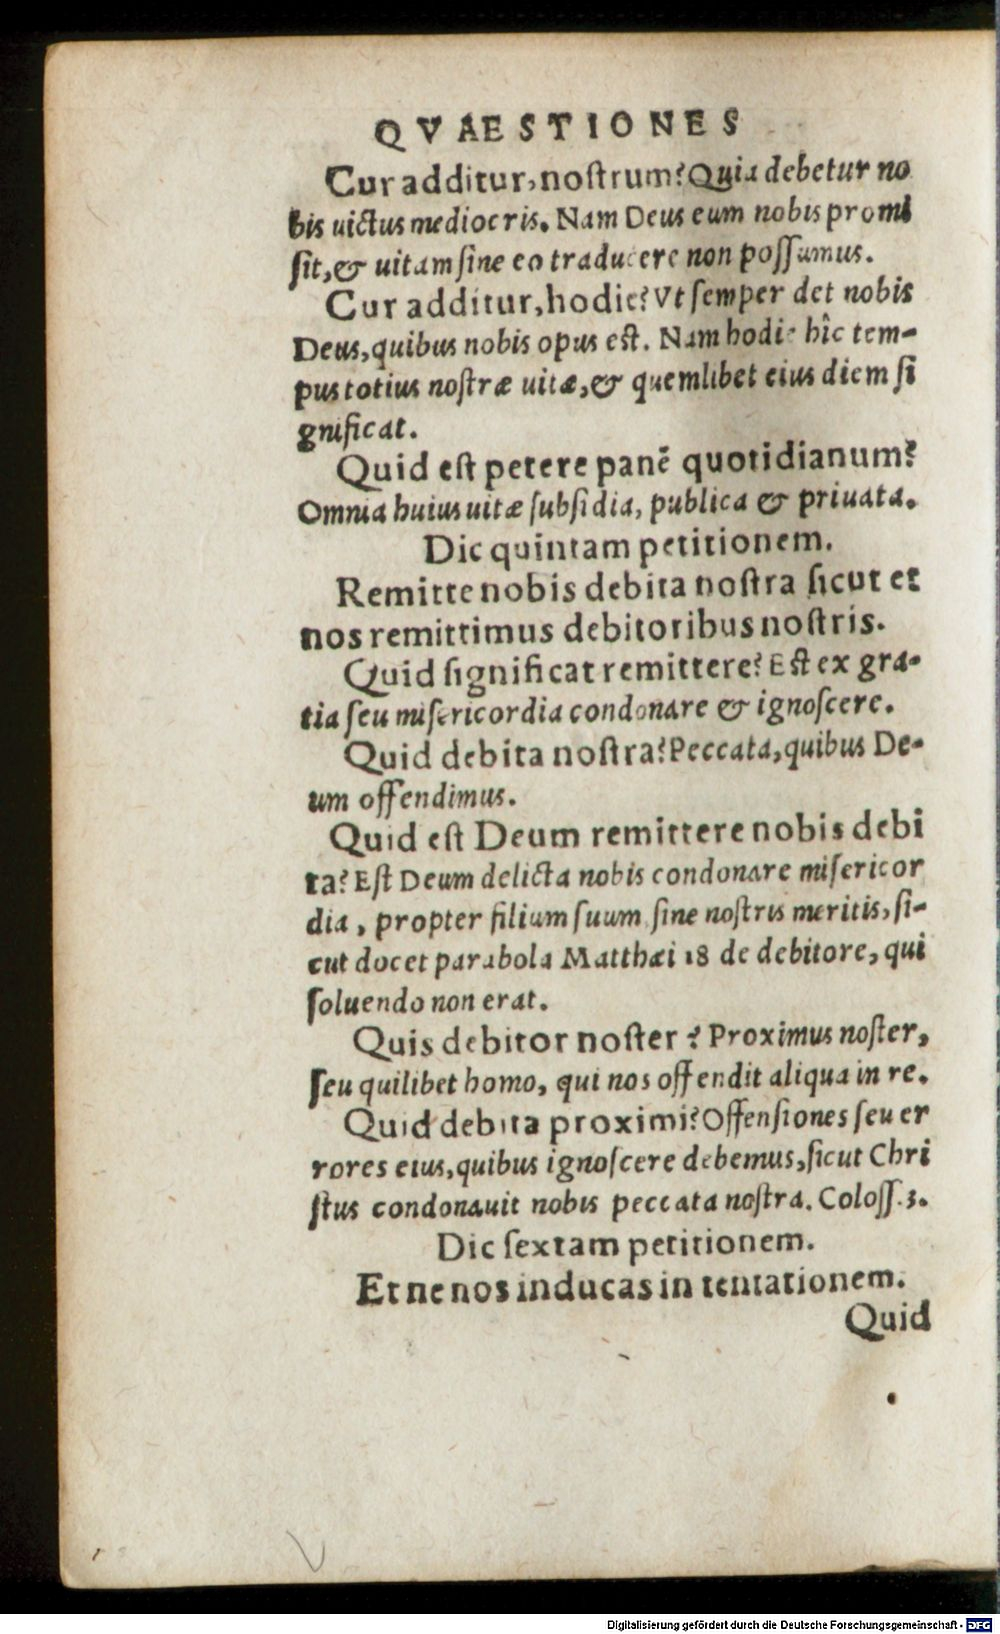 QVAESTIONES
Cur additur, noſtrum? Quia debetur no
bis uictus mediocris. Nam Deus eum nobis promi
ſit, & uitam ſine eo traducere non poſſumus.
Cur additur, hodie? Vt ſemper det nobis
Deus, quibus nobis opus eſt. Nam hodie hîc tem-
pus totius noſtræ uitæ, & quemlibet eius diem ſi
gnificat.
Quid eſt petere panē quotidianum?
Omnia huius uitæ ſubſidia, publica & priuata.
Dic quintam petitionem.
Remitte nobis debita noſtra ſicut et
nos remittimus debitoribus noſtris.
Quid ſignificat remittere? Eſt ex gra-
tia ſeu miſericordia condonare & ignoſcere.
Quid debita noſtra? Peccata, quibus De-
um offendimus.
Quid eſt Deum remittere nobis debi
ta? Eſt Deum delicta nobis condonare miſericor
dia, propter filium ſuum ſine noſtris meritis, ſi-
cut docet parabola Matthæi 18 de debitore, qui
ſoluendo non erat.
Quis debitor noſter? Proximus noſter,
ſeu quilibet homo, qui nos offendit aliqua in re.
Quid debita proximi? Offenſiones ſeu er
rores eius, quibus ignoſcere debemus, ſicut Chri
ſtus condonauit nobis peccata noſtra. Coloſſ. 3.
Dic ſextam petitionem.
Et ne nos inducas in tentationem.
Quid
Digitalisierung gefördert durch die Deutsche Forschungsgemeinschaft - DFG